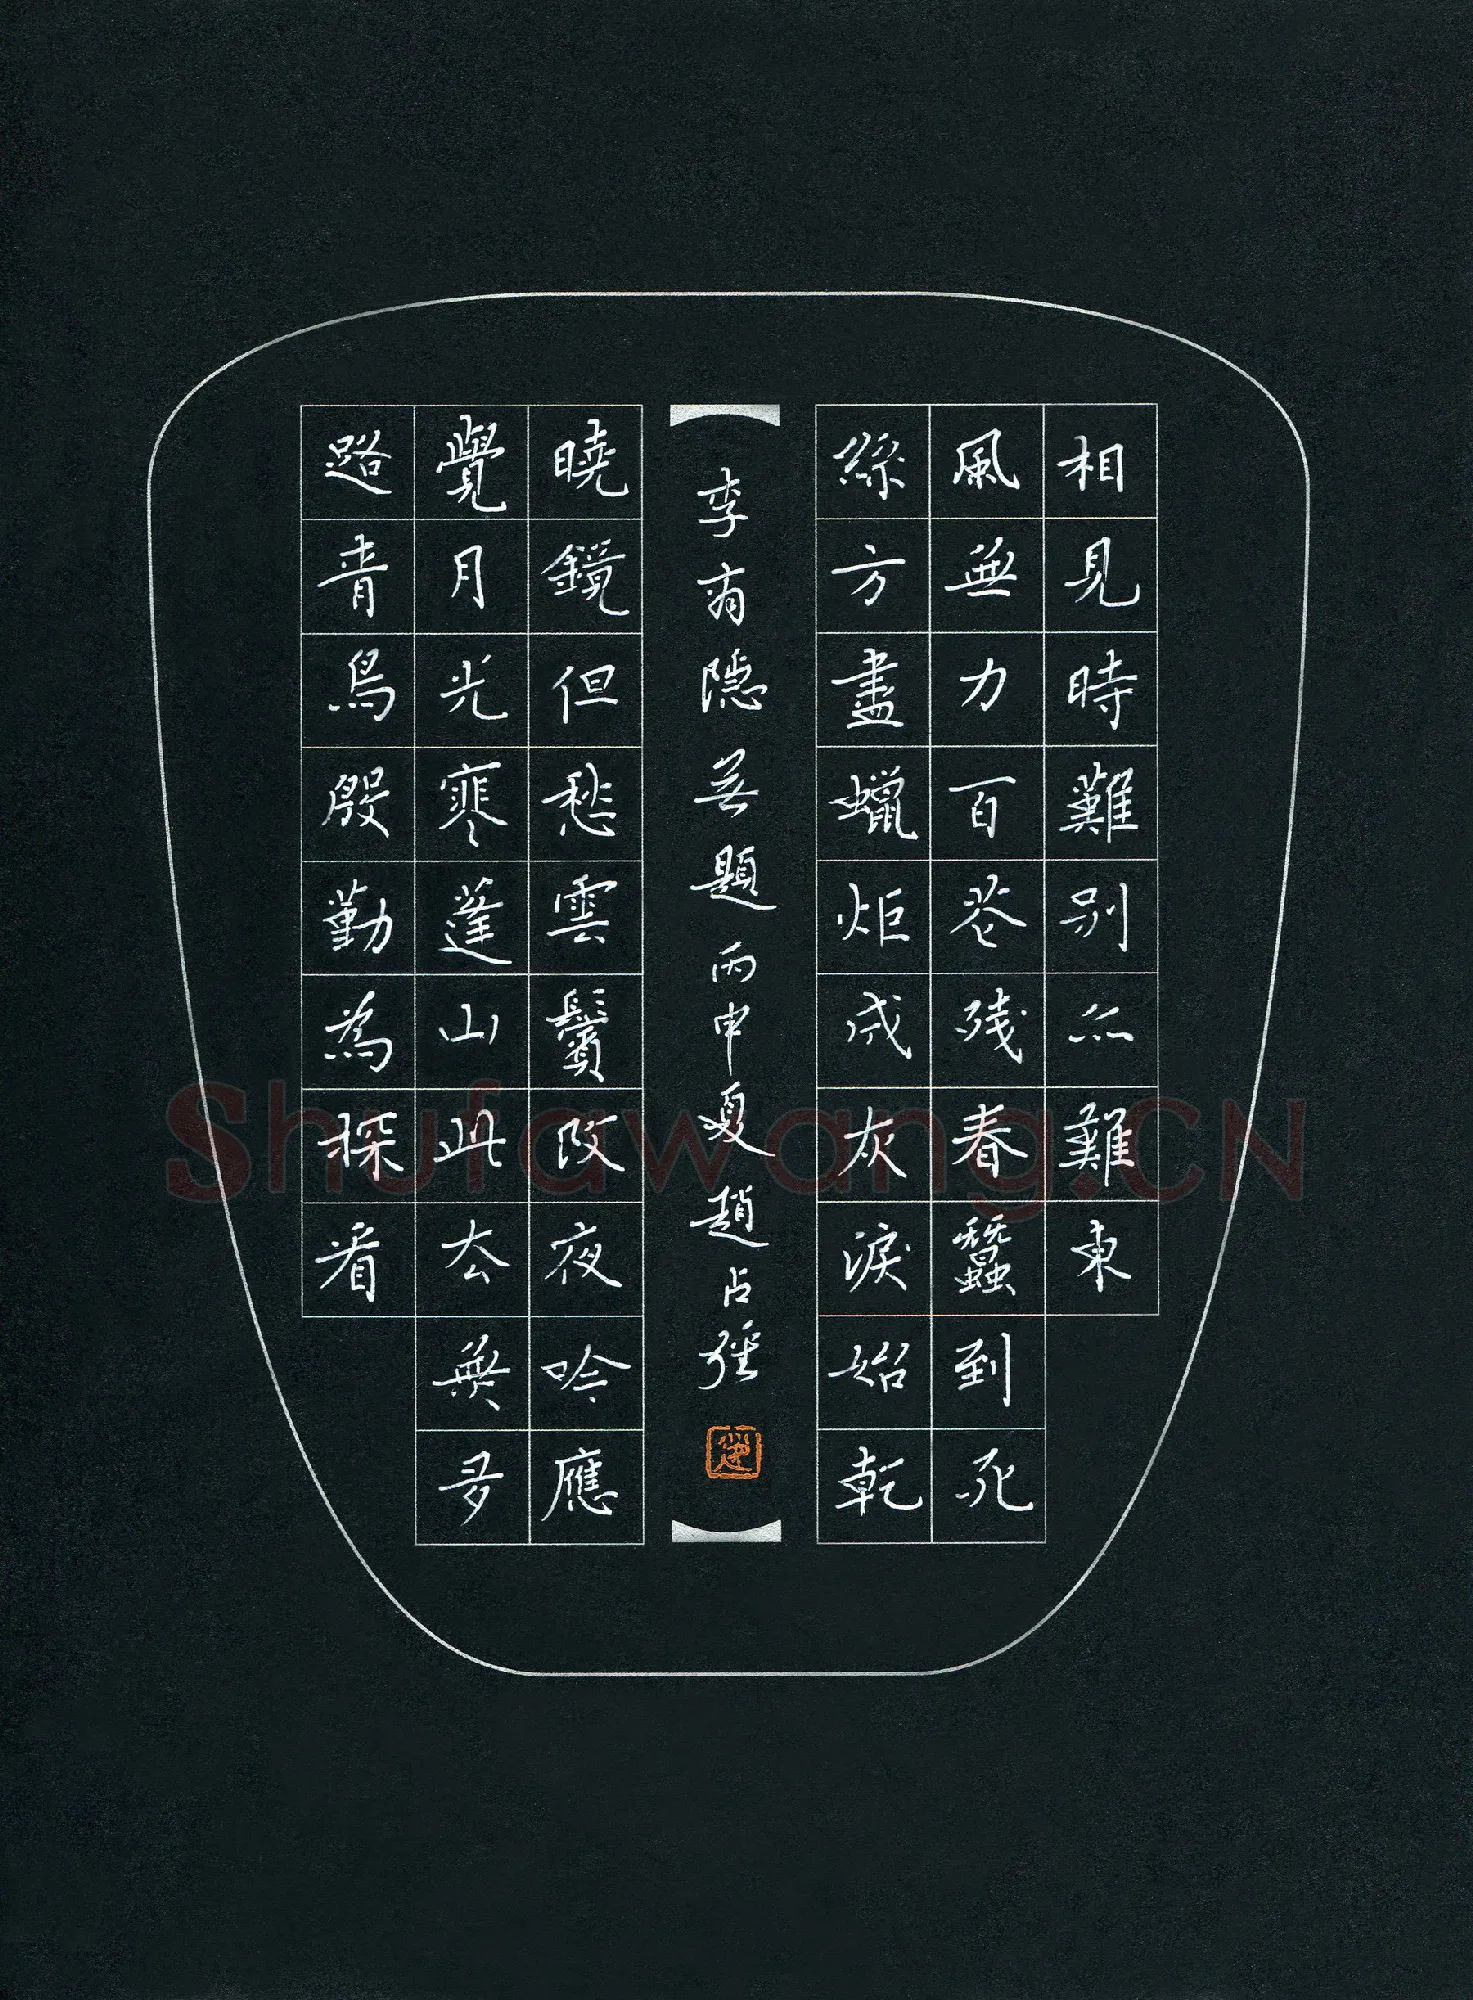 相見時難別亦難東
風無力百花殘春蠶到死
絲方盡蠟炬成灰淚始乾
李商隱無題丙申夏趙占強
曉鏡但愁雲鬢改夜吟應
覺月光寒蓬山此去無多
路青鳥殷勤為探看
Shufawang.CN